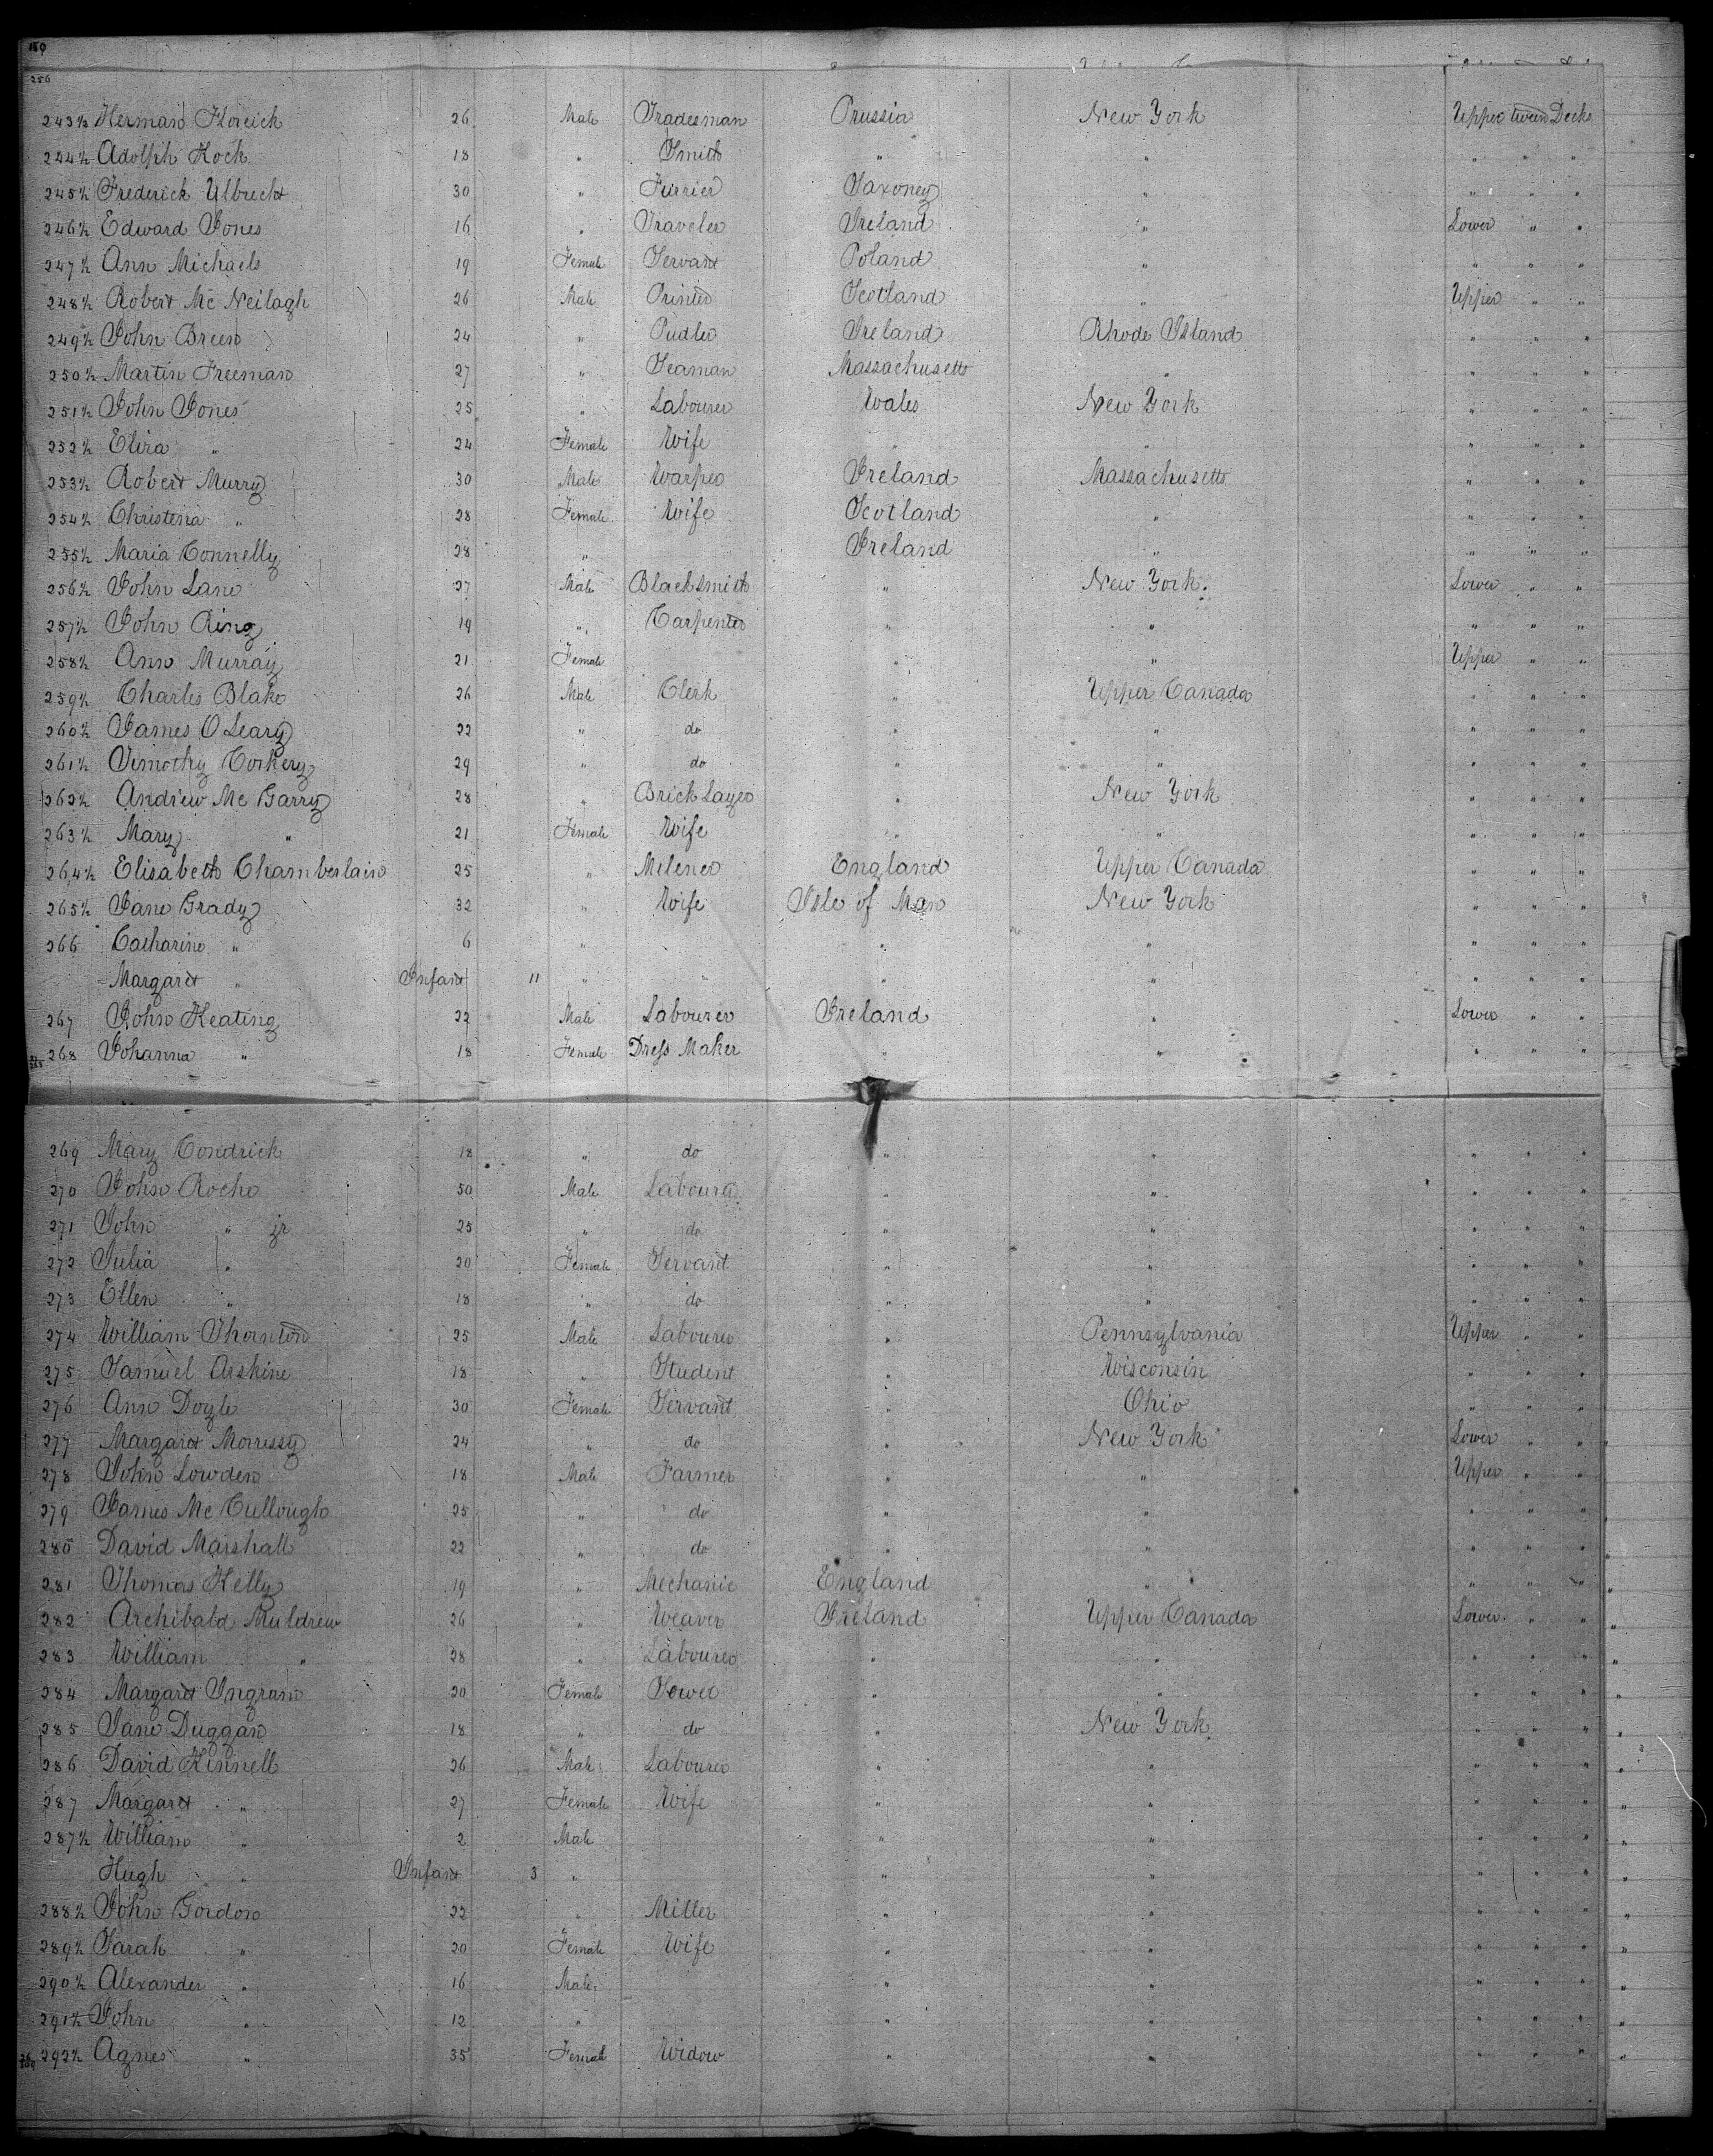 150
256
243½ Herman Floreich 26 Male Tradesman Prussia New York Upper tween Decks
244½ Adolph Kock 18 " Smith " " " " "
245½ Frederick Ulbrecht 30 " Furrier Saxoney " " " "
246½ Edward Jones 16 " Traveler Ireland " Lower " "
247½ Ann Michaels 19 Female Servant Poland " " " "
248½ Robert Mc Neilagh 26 Male Printer Scotland " Upper " "
249½ John Breen 24 " Pudler Ireland Rhode Island " " "
250½ Martin Freeman 27 " Seaman Massachusetts " " " "
251½ John Jones 25 " Labourer Wales New York " " "
252½ Eliza " 24 Female Wife " " " " "
253½ Robert Murry 30 Male Warper Ireland Massachusetts " " "
254½ Christena " 28 Female Wife Scotland " " " "
255½ Maria Connelly 28 " Ireland " " " "
256½ John Lane 27 Male Blacksmith " New York Lower " "
257½ John Ring 19 " Carpenter " " " " "
258½ Ann Murray 21 Female " " Upper " "
259½ Charles Blake 26 Male Clerk " Upper Canada " " "
260½ James O Leary 22 " do " " " " "
261½ Timothy Corkery 29 " do " " " " "
262½ Andrew Mc Garry 28 " Brick Layer " New York " " "
263½ Mary " 21 Female Wife " " " " "
264½ Elisabeth Chamberlain 25 " Milener England Upper Canada " " "
265½ Jane Grady 32 " Wife Isle of Man New York " " "
266 Catharine " 6 " " " " " "
Margaret " Infant 11 " " " " " " "
267 John Keating 22 Male Labourer Ireland " Lower " "
268 Johanna " 18 Female Dress Maker " " " " "
269 Mary Condrick 18 " do " " " " "
270 John Roche 50 Male Labourer " " " " "
271 John " jr 25 " do " " " " "
272 Julia " 20 Female Servant " " " " "
273 Ellen " 18 " do " " " " "
274 William Thornton 25 Male Labourer " Pennsylvania Upper " "
275 Samuel Arskine 18 " Student " Wisconsin " " "
276 Ann Doyle 30 Female Servant " Ohio " " "
277 Margaret Morrissy 24 " do " New York Lower " "
278 John Lowden 18 Male Farmer " " Upper " "
279 James Mc Cullough 25 " do " " " " "
280 David Marshall 22 " do " " " " "
281 Thomas Kelly 19 " Mechanic England " " " "
282 Archibald Muldrew 26 " Weaver Ireland Upper Canada Lower " "
283 William " 28 " Labourer " " " " "
284 Margaret Ingram 20 Female Sower " " " " "
285 Jane Duggan 18 " do " New York " " "
286 David Kinnell 26 Male Labourer " " " " "
287 Margaret " 27 Female Wife " " " " "
287½ William " 2 Male " " " " "
Hugh " Infant 3 " " " " " "
288½ John Gordon 22 " Miller " " " " "
289½ Sarah " 20 Female Wife " " " " "
290½ Alexander " 16 Male " " " " "
291½ John " 12 " " " " " "
292½ Agnes " 35 Female Widow " " " " "